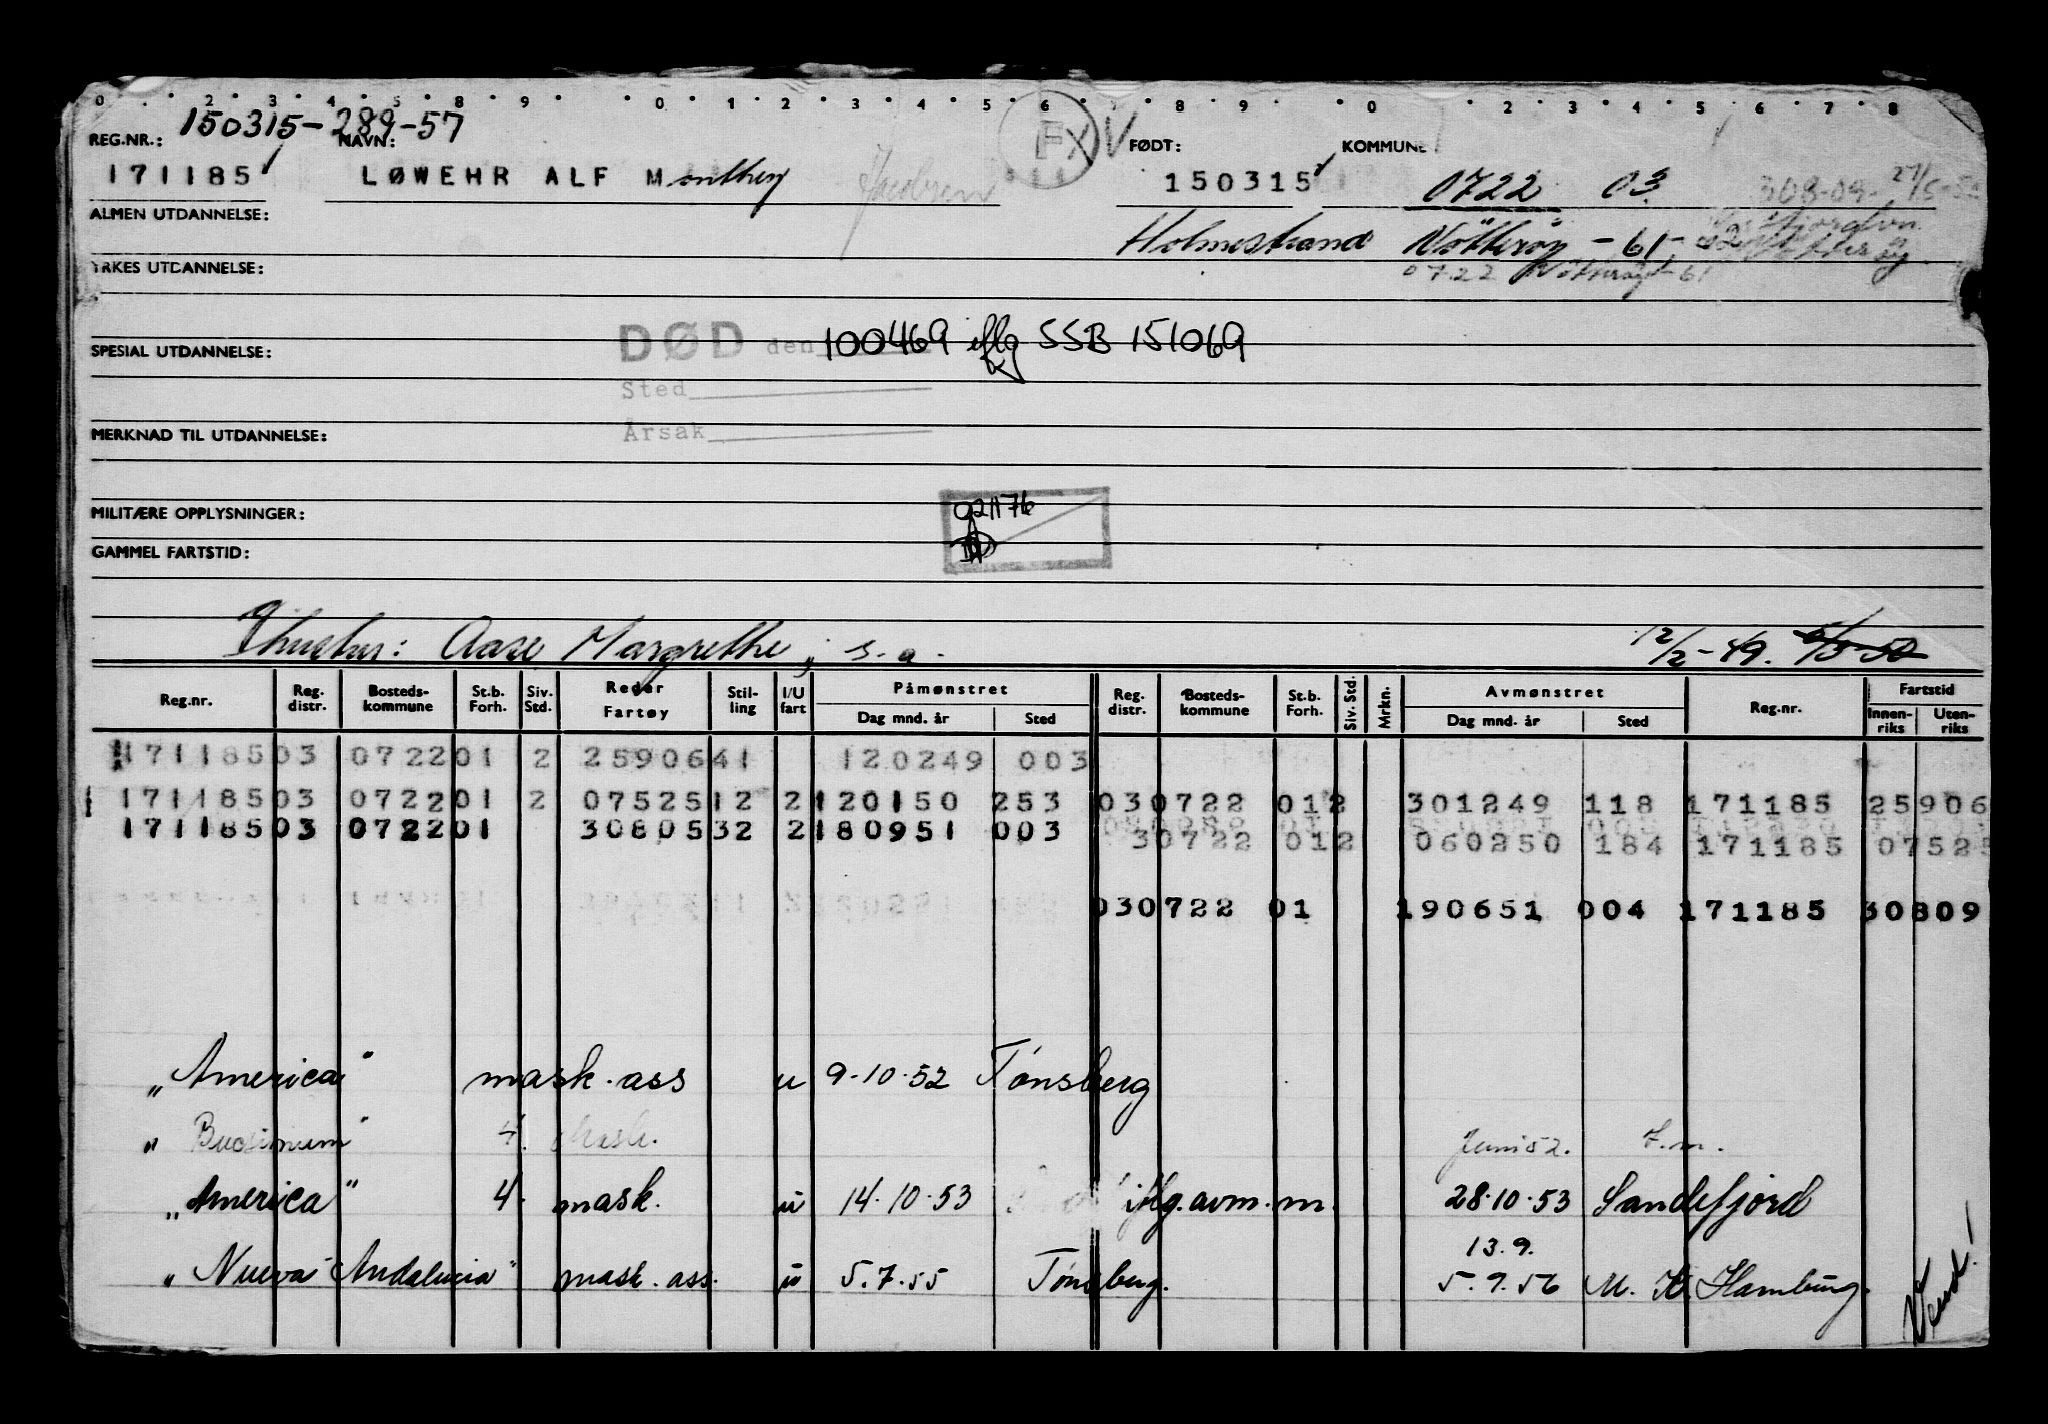 0 2 3 4 5 8 9 0 1 2 3 4 5 6 8 9 0 2 3 4 5 6 7 8
150315-289-57
REG.NR.: NAVN: FØDT: KOMMUNE
171185 LØWEHR ALF Monthey Jacobsen 150315 0722 03
ALMEN UTDANNELSE:
Holmestrand Nøtterøy -61-
YRKES UTDANNELSE: 0722 -61
DØD den 100469 iflg SSB 151069
SPESIAL UTDANNELSE:
Sted
Årsak
MERKNAD TIL UTDANNELSE:
021176
MILITÆRE OPPLYSNINGER:
GAMMEL FARTSTID:
hustru: Aase Margrethe, s.a. 12/2-49. 6/3-50
Reg.nr. Reg. distr. Bosteds-kommune St.b. Forh. Siv. Std. Reder Fartøy Stil-ling I/U fart Påmønstret Dag mnd. år Sted Reg. distr. Bosteds-kommune St.b. Forh. Siv. Std. Mrkn. Avmønstret Dag mnd. år Sted Reg.nr. Fartstid Innen-riks Uten-riks
171185 03 0722 01 2 25906 41 120249 003
171185 03 0722 01 2 07525 12 2 120150 253 03 0722 01 2 301249 118 171185 25906
171185 03 0722 01 30805 32 2 180951 003
30722 01 2 060250 184 171185 07525
03 0722 01 190651 004 171185 30809
"America" mask.ass u 9.10.52 Tønsberg
4. mask. Juni 52. f.m.
"America" 4. mask. u 14.10.53 iflg.avm.m. 28.10.53 Sandefjord
13.9.
"Nueva Andalucia" mask.ass. u 5.7.55 Tønsberg. 5.9.56 M.K. Hamburg.
Vend!